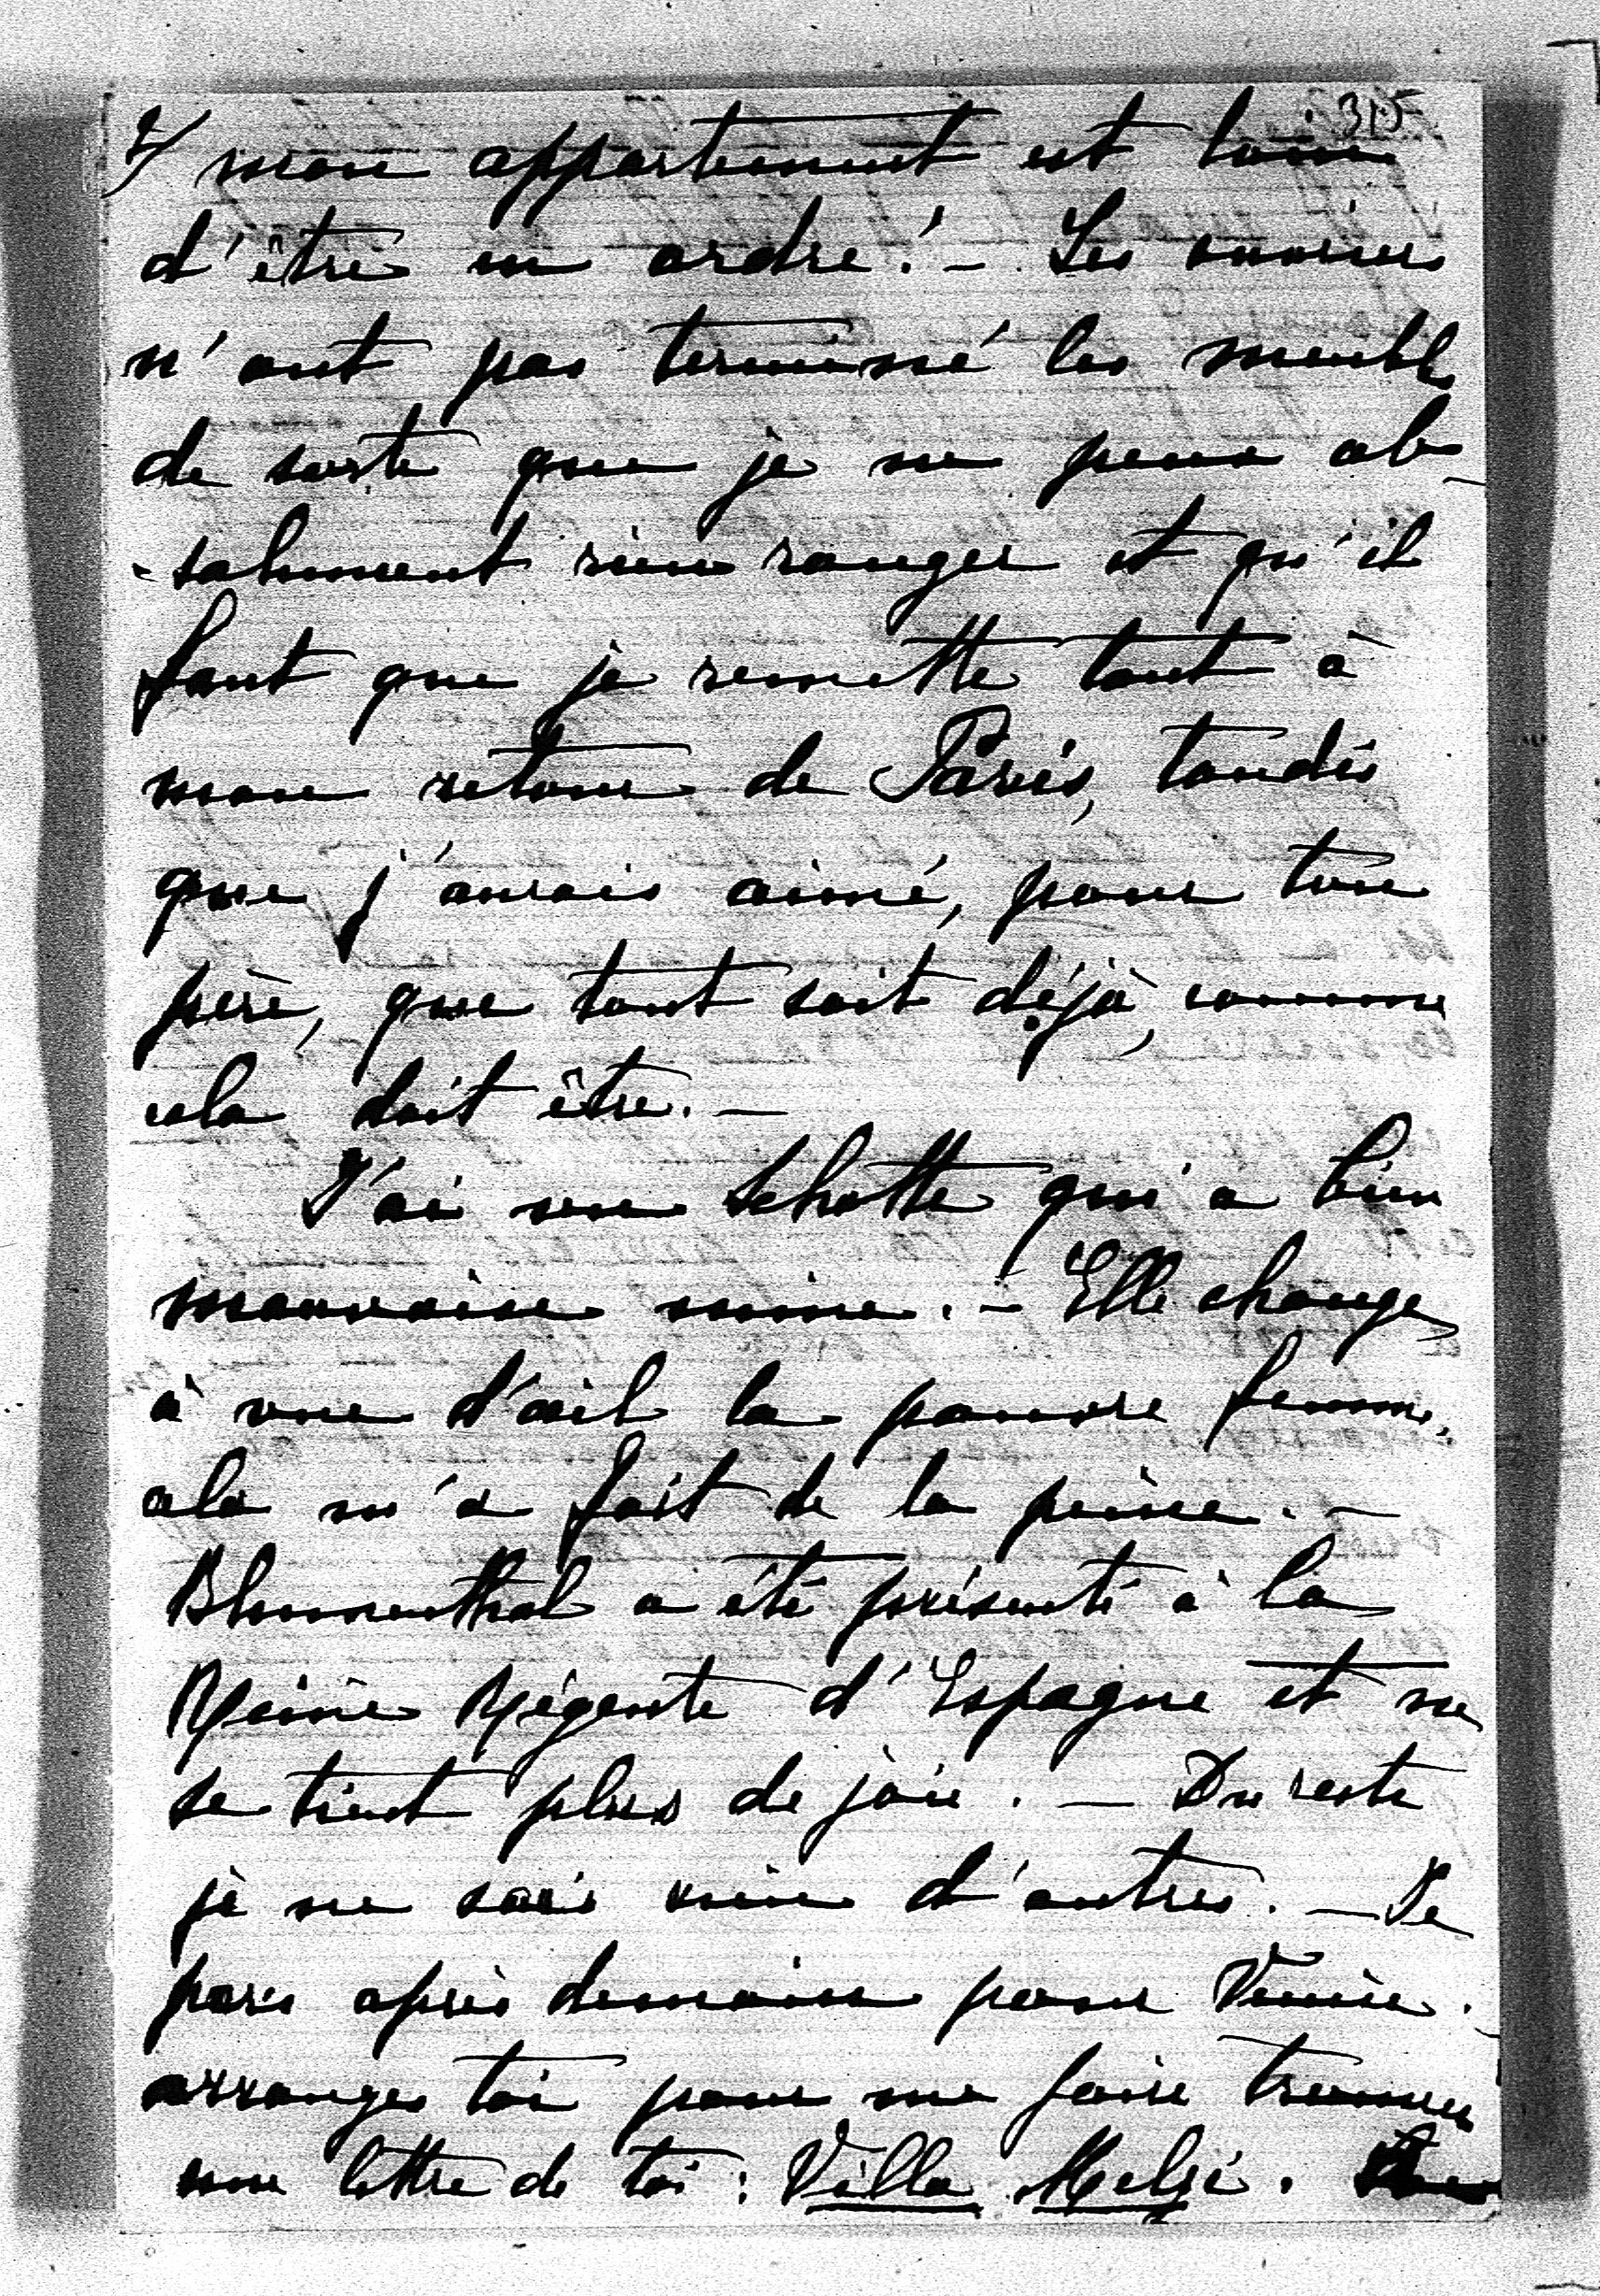 315
2/ mon appartement est loin
d'être en ordre! – Les ouvriers
n'ont pas terminé les meubles
de sorte que je ne peux ab-
-solument rien ranger et qu'il
faut que je remette tout à
mon retour de Paris, tandis
que j'aurais aimé, pour ton
père, que tout soit déjà, comme
cela doit être. –
J'ai vu Schotte qui a bien
mauvaise mine. – Elle change
à vue d'œil la pauvre femme,
cela m'a fait de la peine. –
Blumenthal a été présenté à la
Reine Régente d'Espagne et ne
se tient plus de joie. – Du reste
je ne sais rien d'autres. – Je
pars après demain pour Venise.
arranges toi pour me faire trouver
une lettre de toi : Villa Melzi.